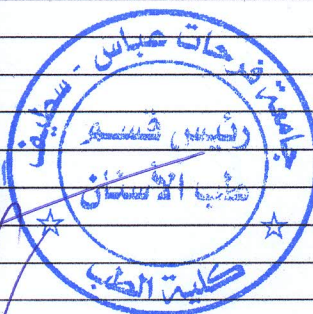 جامعة فرحات عباس - سطيف
رئيس قسم
طب الأسنان
كلية الطب